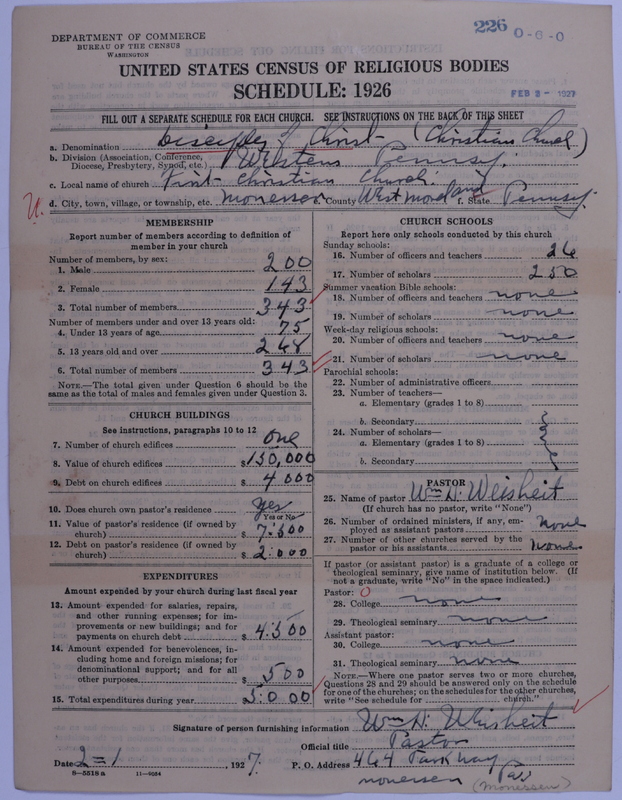 226 0-6-0
DEPARTMENT OF COMMERCE
BUREAU OF THE CENSUS
WASHINGTON
UNITED STATES CENSUS OF RELIGIOUS BODIES
SCHEDULE: 1926
FEB 3 - 1927
FILL OUT A SEPARATE SCHEDULE FOR EACH CHURCH. SEE INSTRUCTIONS ON THE BACK OF THIS SHEET
a. Denomination Disciples of Christ - (Christian Church)
b. Division (Association, Conference, Diocese, Presbytery, Synod, etc.) Western Pennsy.
c. Local name of church First Christian Church.
d. City, town, village, or township, etc. Monessen County Westmoreland f. State Pennsy.
MEMBERSHIP
Report number of members according to definition of member in your church
Number of members, by sex:
1. Male 200
2. Female 143
3. Total number of members 343
Number of members under and over 13 years old:
4. Under 13 years of age 75
5. 13 years old and over 268
6. Total number of members 343
NOTE.—The total given under Question 6 should be the same as the total of males and females given under Question 3.
CHURCH BUILDINGS
See instructions, paragraphs 10 to 12
7. Number of church edifices one
8. Value of church edifices $150,000
9. Debt on church edifices $4000
10. Does church own pastor's residence yes
Yes or No
11. Value of pastor's residence (if owned by church) $7500
12. Debt on pastor's residence (if owned by church) $2000
EXPENDITURES
Amount expended by your church during last fiscal year
13. Amount expended for salaries, repairs, and other running expenses; for improvements or new buildings; and for payments on church debt $4500
14. Amount expended for benevolences, including home and foreign missions; for denominational support; and for all other purposes $500
15. Total expenditures during year $5000
CHURCH SCHOOLS
Report here only schools conducted by this church
Sunday schools:
16. Number of officers and teachers 26
17. Number of scholars 250
Summer vacation Bible schools:
18. Number of officers and teachers none
19. Number of scholars none
Week-day religious schools:
20. Number of officers and teachers none
21. Number of scholars none
Parochial schools:
22. Number of administrative officers
23. Number of teachers—
a. Elementary (grades 1 to 8)
b. Secondary
24. Number of scholars—
a. Elementary (grades 1 to 8)
b. Secondary
PASTOR
25. Name of pastor Wm D. Weisheit
(If church has no pastor, write "None")
26. Number of ordained ministers, if any, employed as assistant pastors none
27. Number of other churches served by the pastor or his assistants none
If pastor (or assistant pastor) is a graduate of a college or theological seminary, give name of institution below. (If not a graduate, write "No" in the space indicated.)
Pastor: O
28. College none
29. Theological seminary none
Assistant pastor:
30. College none
31. Theological seminary none
NOTE.—Where one pastor serves two or more churches, Questions 28 and 29 should be answered only on the schedule for one of the churches; on the schedules for the other churches, write "See schedule for church."
Signature of person furnishing information Wm D. Weisheit
Official title Pastor
Date 2-1, 1927. P. O. Address 464 Parkway
Monessen Pa
(Monessen)
8—5518 a 11—9084